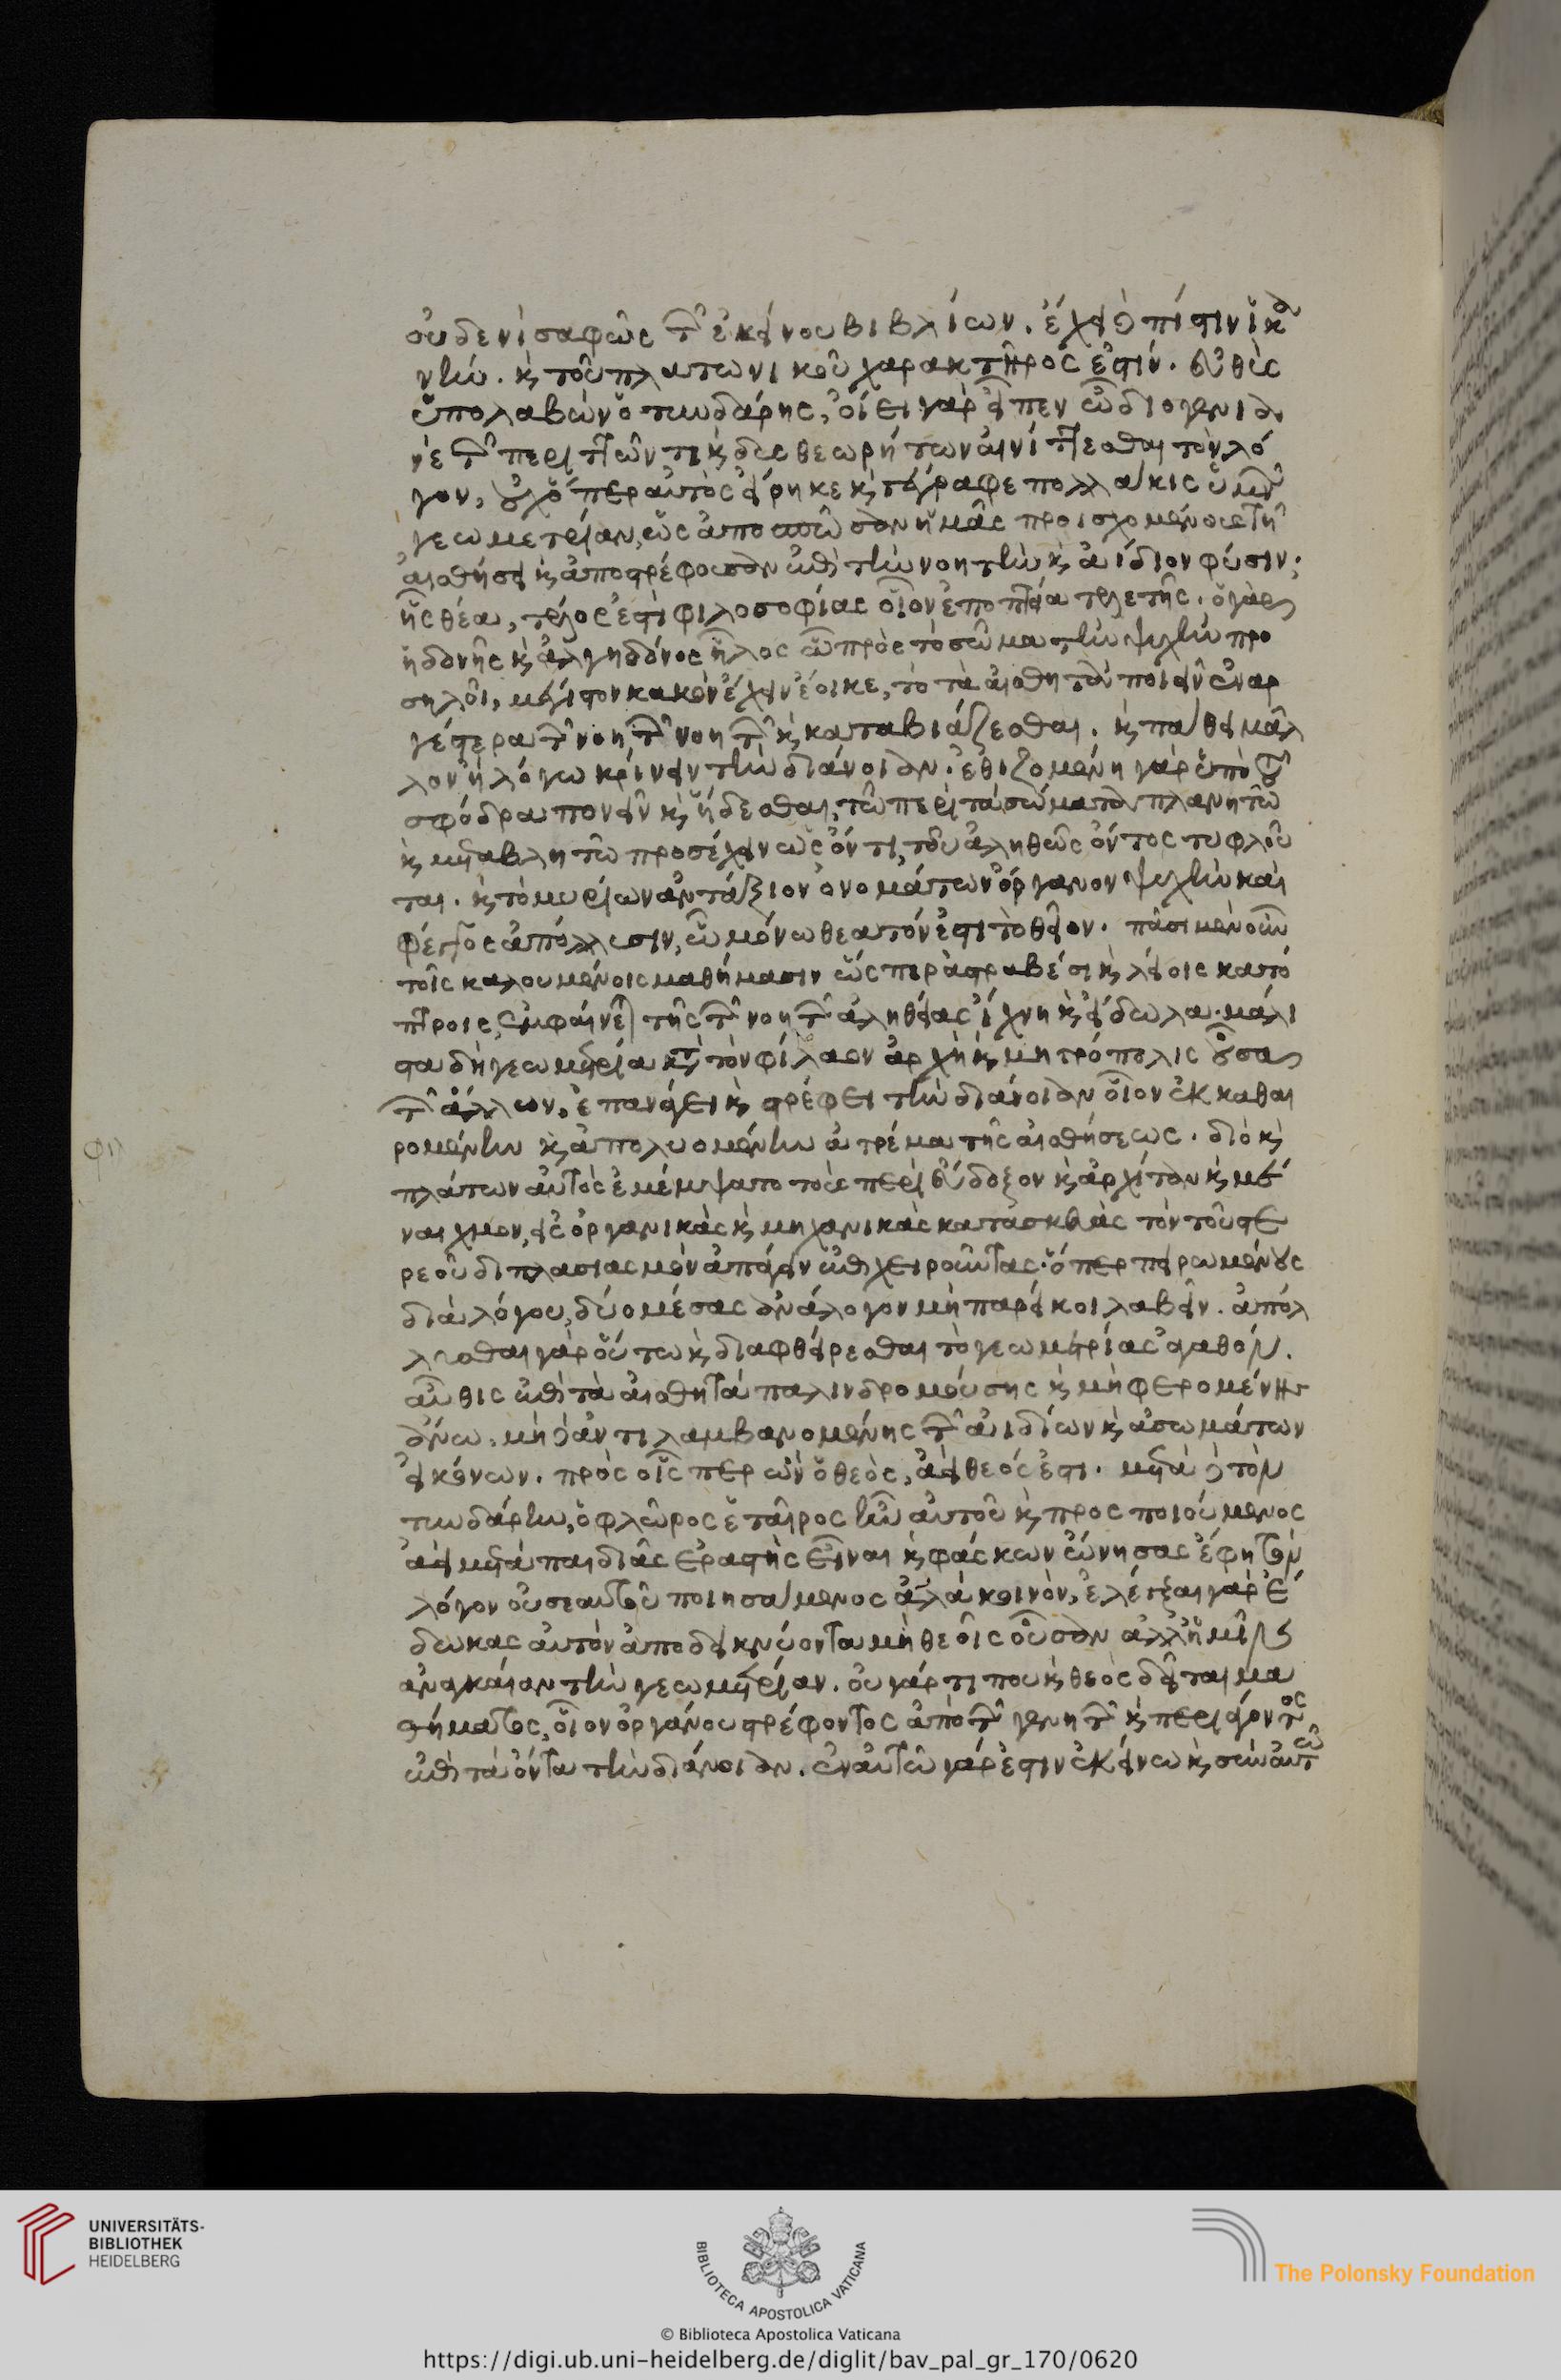 οὐδενὶ σαφῶς τῶν ἐκείνου βιβλίων. ἔχει δὲ πίστιν ἱκα
νὴν. καὶ τοῦ πλατωνικοῦ χαρακτῆρος ἐστίν. εὐθὺς
ὑπολαβὼν ὁ τυνδάρης, οἴει γὰρ εἶπεν ὦ διογενια
νὲ τῶν περιττῶν τι καὶ δυσθεωρήτων αἰνίττεσθαι τὸν λό
γον, οὐχ ὅπερ αὐτὸς εἴρηκε καὶ γέγραφε πολλάκις ὑμνῶν
γεωμετρίαν, ὡς ἀποσπῶσαν ἡμᾶς προισχομένους τῆ
αἰσθήσει καὶ ἀποστρέφουσαν ἐπὶ τὴν νοητὴν καὶ ἀίδιον φύσιν.
ἧς θέα, τέλος ἐστὶ φιλοσοφίας οἷον ἐποπτεία τελετῆς. ὁ γὰρ
ἡδονῆς καὶ ἀλγηδόνος ἧλος ὧ πρὸς τὸ σῶμα τὴν ψυχὴν προ
σηλοῖ, μέγιστον κακὸν ἔχειν ἔοικε, τὸ τὰ αἰσθητὰ ποιεῖν ἐναρ
γέστερα τῶν νοητῶν νοητῶν καὶ καταβιάζεσθαι. καὶ πάθει μᾶλ
λον ἢ λόγω κρίνειν τὴν διάνοιαν. ἐθιζομένη γὰρ ὑπὸ τοῦ
σφόδρα πονεῖν καὶ ἥδεσθαι, τῶ περὶ τὰ σώματα πλανητῶ
καὶ μεταβλητῶ προσέχειν ὡς ὄντι, τοῦ ἀληθῶς ὄντος τυφλοῦ
ται. καὶ τὸ μυρίων ἀντάξιον ὀνομάτων ὄργανον ψυχὴν καὶ
φέγγος ἀπόλλυσιν, ὧ μόνω θεατόν ἐστι τὸ θεῖον. πᾶσι μὲν οὖν
τοῖς καλουμένοις μαθήμασιν ὥσπερ ἀστραβέσι καὶ λείοις κατό
πτροις, ἐμφαίνεται τῆς τῶν νοητῶν ἀληθείας ἴχνη καὶ εἴδωλα. μάλι
στα δὴ γεωμετρία κατὰ τὸν φίλαον ἀρχὴ καὶ μητρόπολις οὖσα
τῶν ἄλλων, ἐπανάγει καὶ στρέφει τὴν διάνοιαν οἷον ἐκκαθαι
ρομένην καὶ ἀπολυομένην ἀτρέμα τῆς αἰσθήσεως. διὸ καὶ
πλάτων αὐτὸς ἐμέμψατο τοὺς περὶ εὔδοξον καὶ ἀρχίταν καὶ μέ
ναιχμον, εἰς ὀργανικὰς καὶ μηχανικὰς κατασκευὰς τὸν τοῦ στε
ρεοῦ διπλασιασμὸν ἀπάγειν ἐπιχειροῦντας. ὅπερ πειρωμένους
διὰ λόγου, δύο μέσας ἀνάλογον μὴ παρείκοι λαβεῖν. ἀπόλ
λυσθαι γὰρ οὕτω καὶ διαφθείρεσθαι τὸ γεωμετρίας ἀγαθόν.
αὖθις ἐπὶ τὰ αἰσθητὰ παλινδρομούσης καὶ μὴ φερομένης
ἄνω, μὴ δὲ ἀντιλαμβανομένης τῶν ἀιδίων καὶ ἀσωμάτων
εἰκόνων. πρὸς οἷσπερ ὢν ὁ θεὸς, ἀεὶ θεός ἐστι. μετὰ δὲ τὸν
τυνδάρην, ὁ φλῶρος ἑταῖρος ἦν αὐτοῦ καὶ προσποιούμενος
ἀεὶ μετὰ παιδιᾶς ἐραστὴς εἶναι καὶ φάσκων ὤνησας ἔφη τὸν
λόγον οὐ σεαυτοῦ ποιησάμενος ἀλλὰ κοινὸν, ἐλέγξαι γὰρ ἔ
δωκας αὐτὸν ἀποδεικνύοντα μὴ θεοῖς οὖσαν ἀλλ' ἡμῖν
ἀναγκαίαν τὴν γεωμετρίαν. οὐ γάρ τι που καὶ θεὸς δεῖται μα
θήματος, οἷον ὀργάνου στρέφοντος ἀπὸ τῶν γενητῶν καὶ περιάγοντος
ἐπὶ τὰ ὄντα τὴν διάνοιαν. ἐν αὐτῶ γάρ ἐστιν ἐκείνω καὶ σὺν αὐτῶ
UNIVERSITÄTS-
BIBLIOTHEK
HEIDELBERG
BIBLIOTECA APOSTOLICA VATICANA
The Polonsky Foundation
© Biblioteca Apostolica Vaticana
https://digi.ub.uni-heidelberg.de/diglit/bav_pal_gr_170/0620